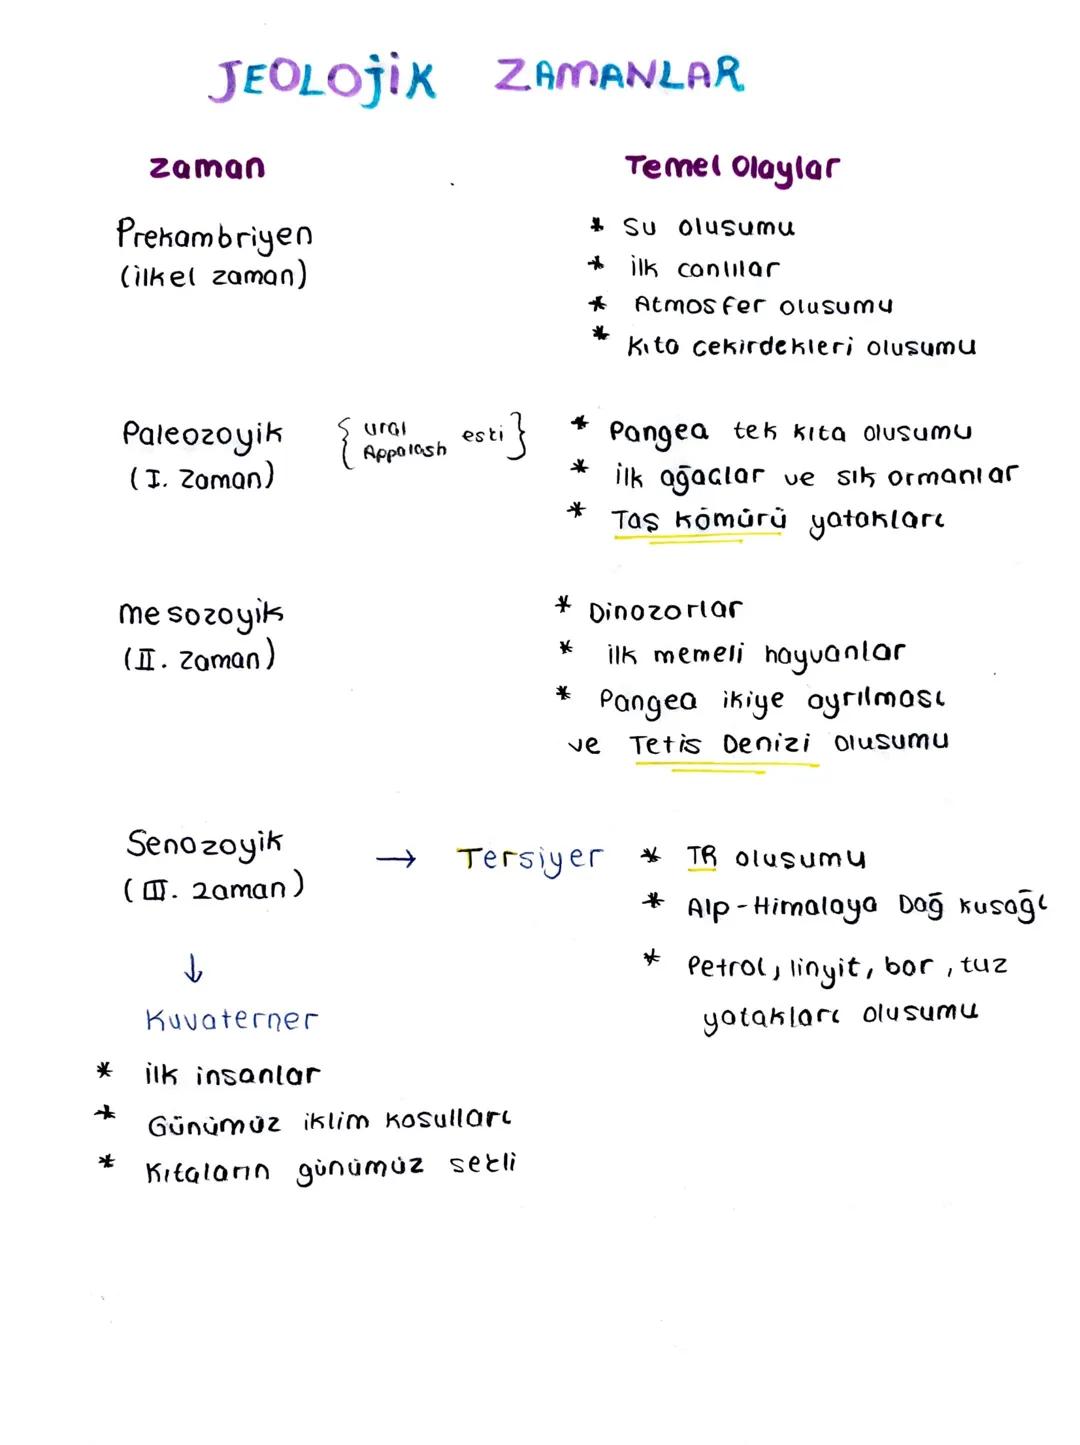 JEOLOjiK ZAMANLAR
zaman
Temel Olaylar
Prekambriyen
(ilkel zaman)
* Su olusumu
* ilk canlılar
* Atmosfer olusumu
* Kıta cekirdekleri oluşumu
Paleozoyik
(I. Zaman)
{ ural
Appalash esti }
* Pangea tek kıta olusumu
* ilk ağaclar ve sık ormanlar
* Taş kömürü yatakları
mesozoyik
(II. Zaman)
* Dinozorlar
* ilk memeli hayvanlar
* Pangea ikiye ayrılması
ve Tetis Denizi olusumu
Senozoyik
(III. zaman)
→ Tersiyer
* TR oluşumu
* Alp-Himalaya Dağ kusağı
* Petrol, linyit, bor, tuz
yatakları olusumu
↓
Kuvaterner
* ilk insanlar
* Günümüz iklim kosulları
* Kıtaların günümüz sekli